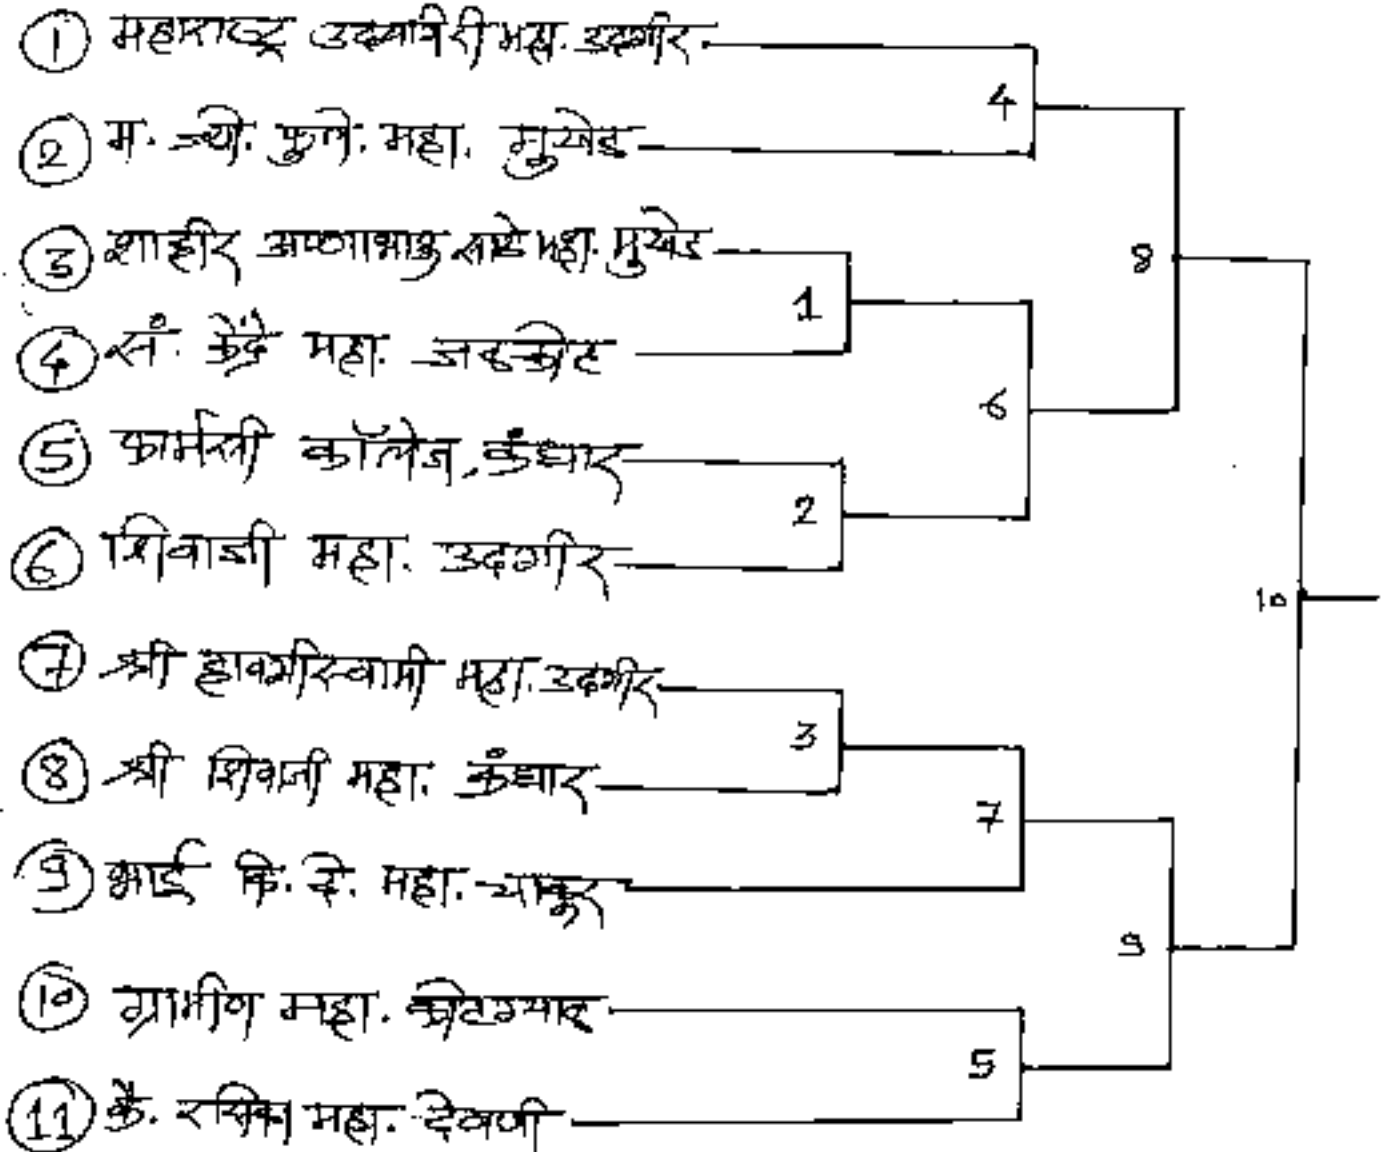 ① महाराष्ट्र उदयगिरी महा. उदगीर.
② म. ज्यो. फुले. महा. मुखेड
③ शाहीर अण्णाभाऊ साठे महा. मुखेड
④ सं. केंद्रे महा. जळकोट
⑤ फार्मसी कॉलेज, कंधार
⑥ शिवाजी महा. उदगीर
⑦ श्री हावगीस्वामी महा. उदगीर
⑧ श्री शिवाजी महा. कंधार
⑨ भाई कि. दे. महा. चाकूर
⑩ ग्रामीण महा. कोटग्याळ
⑪ कै. रसिका महा. देवणी
4
8
1
6
2
10
3
7
9
5